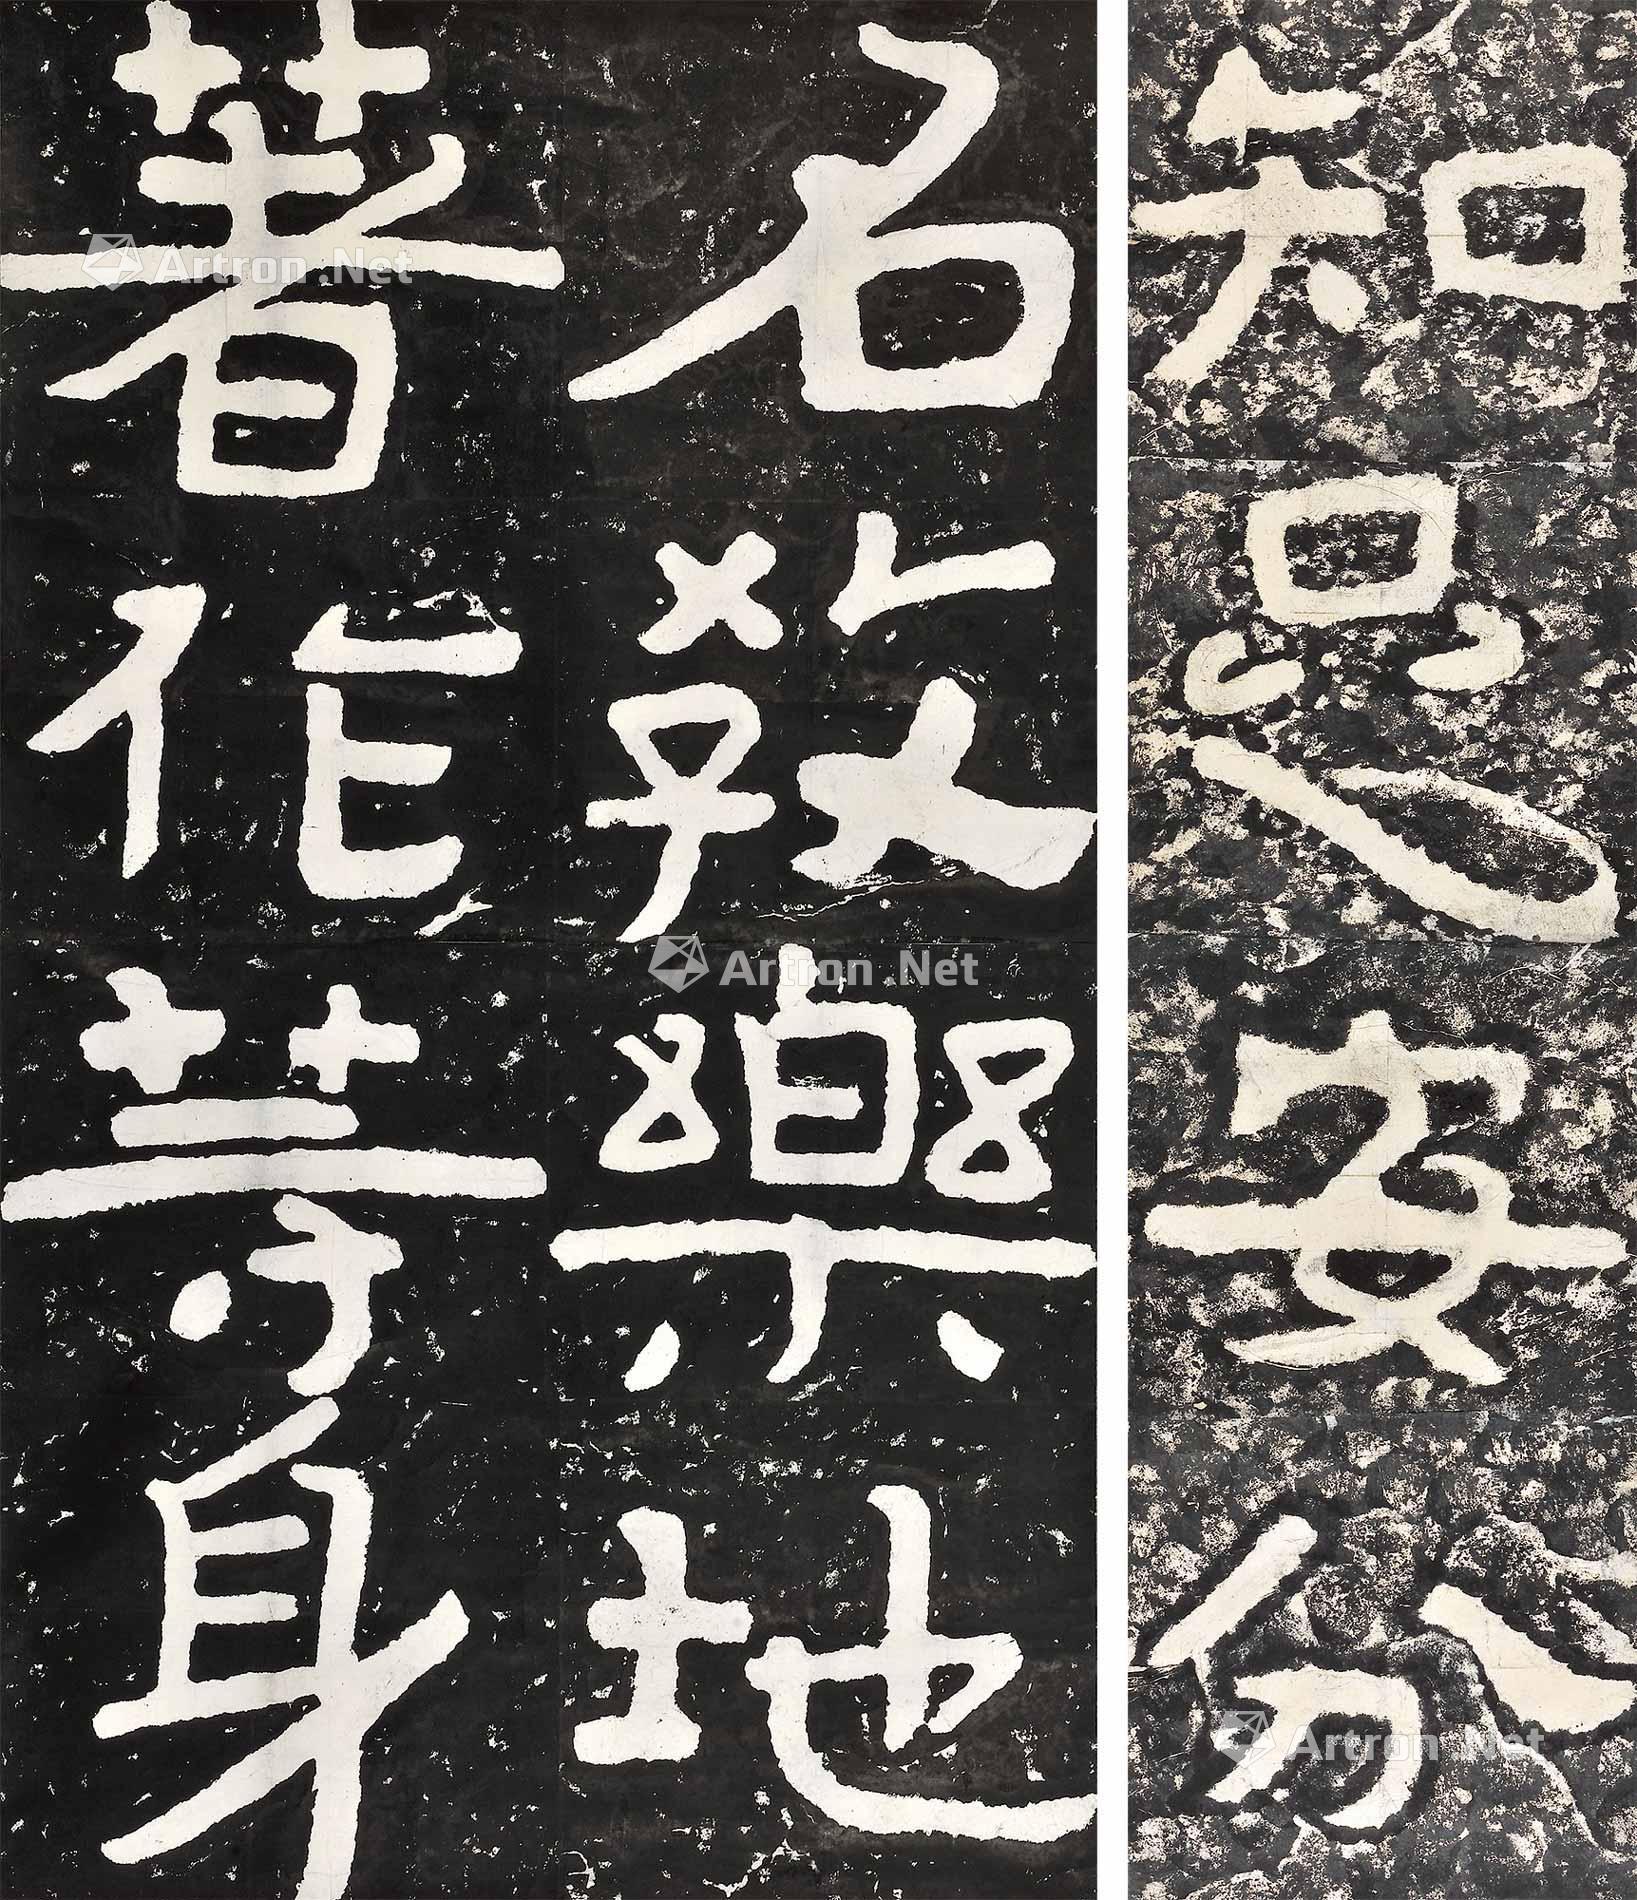 知足安分
名敎樂地
著作等身
Artron.Net
Artron.Net
Artron.Net